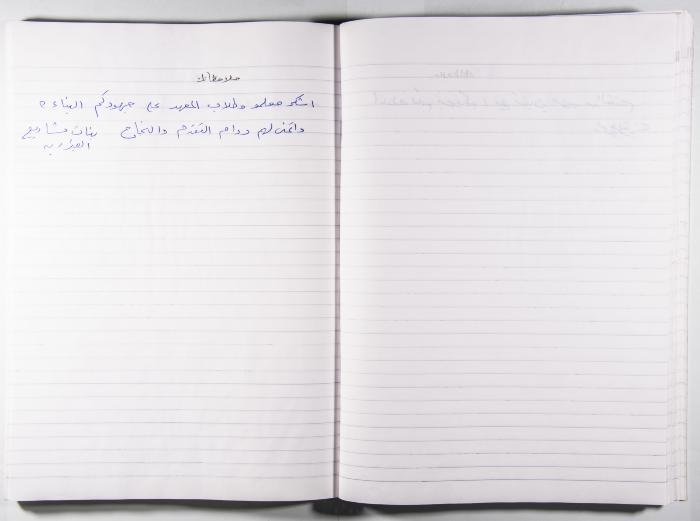 ملاحظات
اشكر معلمو وطلاب المعهد على جهودكم البناءة
واتمنى لهم دوام التقدم والنجاح بنات مشاريع
العيزرية